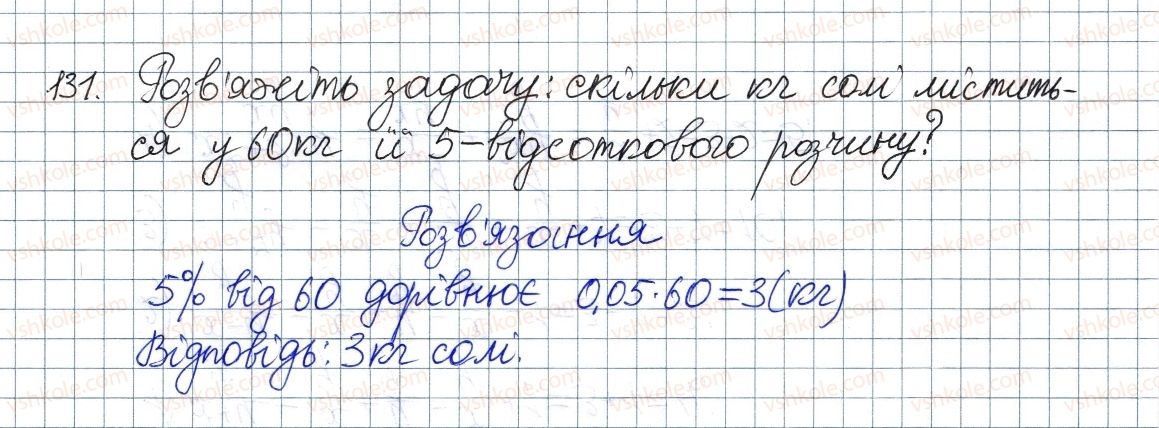 131. Розв'яжіть задачу: скільки кг солі містить-
ся у 60кг її 5-відсоткового розчину?
Розв'язання
5% від 60 дорівнює 0,05·60=3(кг)
Відповідь: 3кг солі.